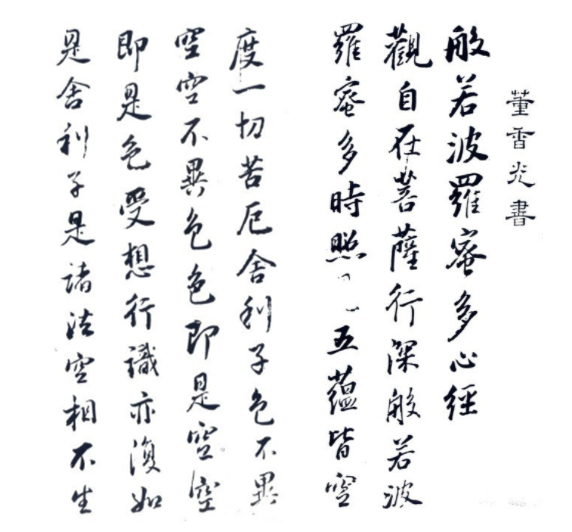 董香光書
般若波羅蜜多心經
觀自在菩薩行深般若波
羅蜜多時照五蘊皆空
度一切苦厄舍利子色不異
空空不異色色即是空空
即是色受想行識亦復如
是舍利子是諸法空相不生